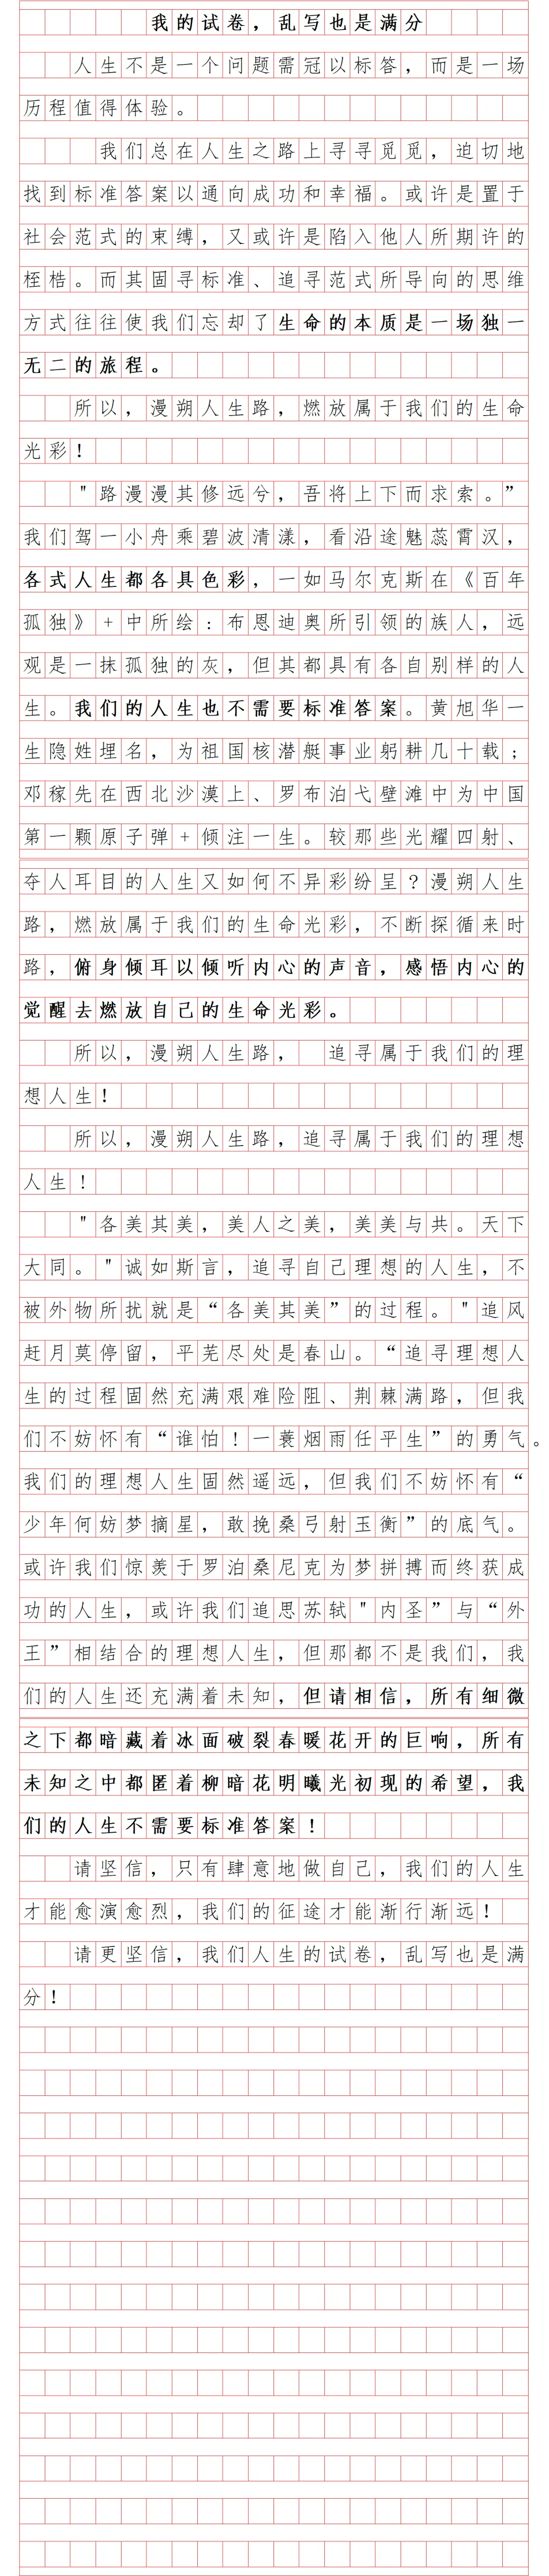 我的试卷，乱写也是满分
人生不是一个问题需冠以标答，而是一场
历程值得体验。
我们总在人生之路上寻寻觅觅，迫切地
找到标准答案以通向成功和幸福。或许是置于
社会范式的束缚，又或许是陷入他人所期许的
桎梏。而其固寻标准、追寻范式所导向的思维
方式往往使我们忘却了生命的本质是一场独一
无二的旅程。
所以，漫朔人生路，燃放属于我们的生命
光彩！
"路漫漫其修远兮，吾将上下而求索。”
我们驾一小舟乘碧波清漾，看沿途魅蕊霄汉，
各式人生都各具色彩，一如马尔克斯在《百年
孤独》+中所绘：布恩迪奥所引领的族人，远
观是一抹孤独的灰，但其都具有各自别样的人
生。我们的人生也不需要标准答案。黄旭华一
生隐姓埋名，为祖国核潜艇事业躬耕几十载；
邓稼先在西北沙漠上、罗布泊戈壁滩中为中国
第一颗原子弹+倾注一生。较那些光耀四射、
夺人耳目的人生又如何不异彩纷呈？漫朔人生
路，燃放属于我们的生命光彩，不断探循来时
路，俯身倾耳以倾听内心的声音，感悟内心的
觉醒去燃放自己的生命光彩。
所以，漫朔人生路， 追寻属于我们的理
想人生！
所以，漫朔人生路，追寻属于我们的理想
人生！
"各美其美，美人之美，美美与共。天下
大同。"诚如斯言，追寻自己理想的人生，不
被外物所扰就是“各美其美”的过程。"追风
赶月莫停留，平芜尽处是春山。“追寻理想人
生的过程固然充满艰难险阻、荆棘满路，但我
们不妨怀有“谁怕！一蓑烟雨任平生”的勇气。
我们的理想人生固然遥远，但我们不妨怀有“
少年何妨梦摘星，敢挽桑弓射玉衡”的底气。
或许我们惊羡于罗泊桑尼克为梦拼搏而终获成
功的人生，或许我们追思苏轼"内圣”与“外
王”相结合的理想人生，但那都不是我们，我
们的人生还充满着未知，但请相信，所有细微
之下都暗藏着冰面破裂春暖花开的巨响，所有
未知之中都匿着柳暗花明曦光初现的希望，我
们的人生不需要标准答案！
请坚信，只有肆意地做自己，我们的人生
才能愈演愈烈，我们的征途才能渐行渐远！
请更坚信，我们人生的试卷，乱写也是满
分！